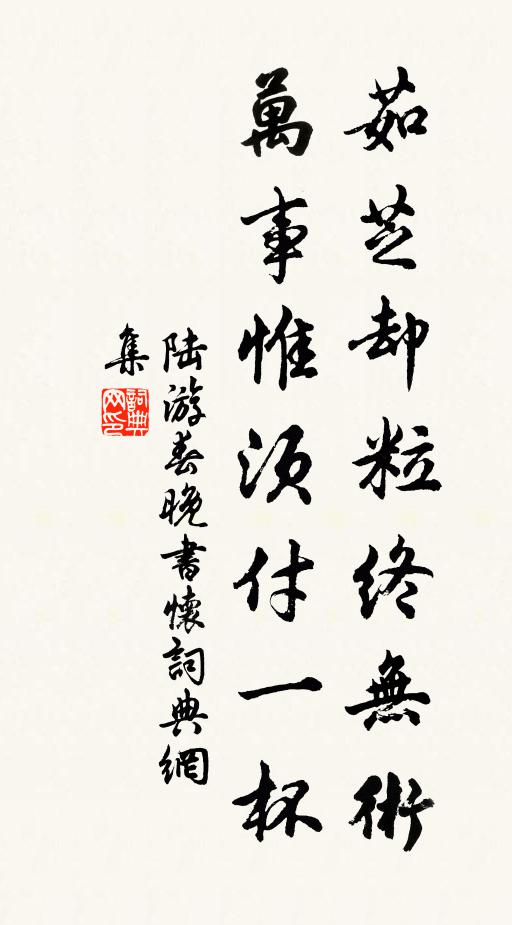 茹芝却粒終無術
萬事惟須付一杯
陸游春晚書懷詞典網
集
詞典
网印